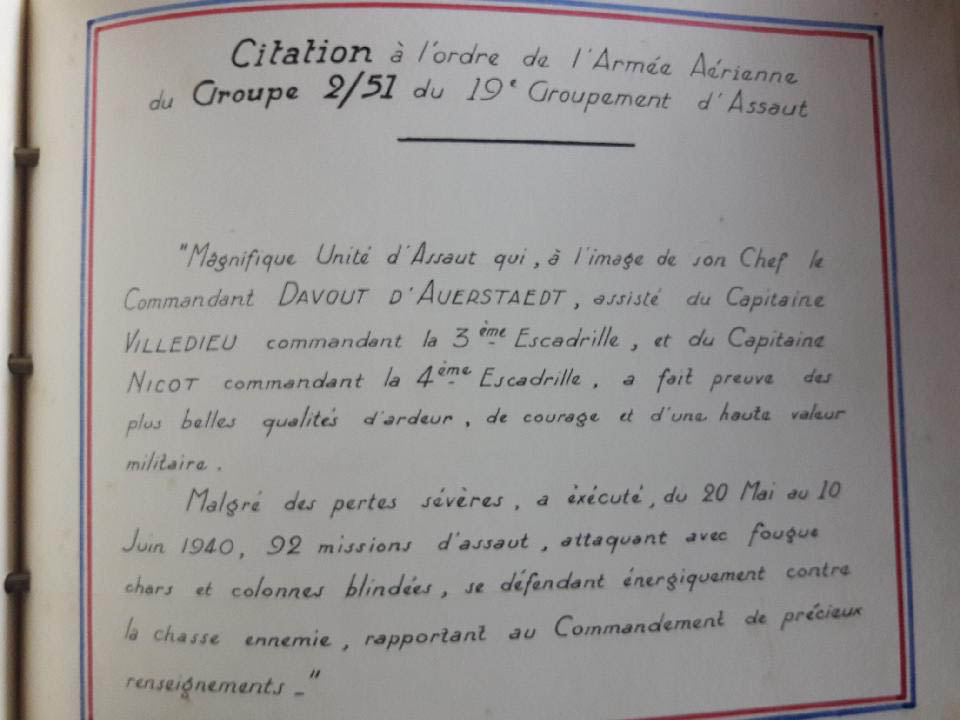 Citation à l'ordre de l'Armée Aérienne
du Groupe 2/51 du 19e Groupement d'Assaut
"Magnifique Unité d'Assaut qui, à l'image de son Chef le
Commandant DAVOUT D'AUERSTAEDT, assisté du Capitaine
VILLEDIEU commandant la 3ème Escadrille, et du Capitaine
NICOT commandant la 4ème Escadrille, a fait preuve des
plus belles qualités d'ardeur, de courage et d'une haute valeur
militaire.
Malgré des pertes sévères, a èxécuté, du 20 Mai au 10
Juin 1940, 92 missions d'assaut, attaquant avec fougue
chars et colonnes blindées, se défendant énergiquement contre
la chasse ennemie, rapportant au Commandement de précieux
renseignements_"